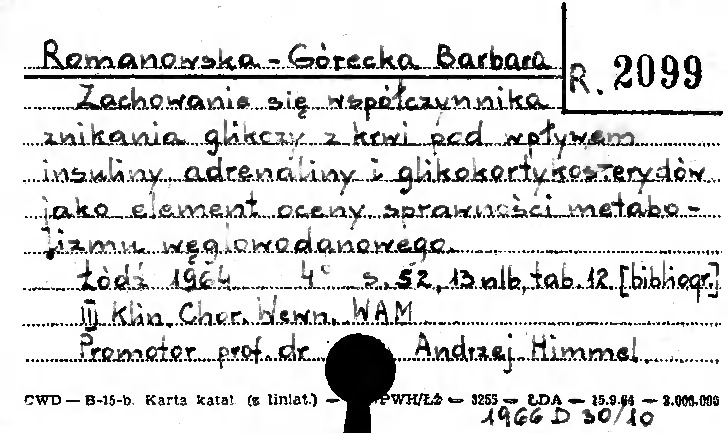 Romanowska-Górecka Barbara
R. 2099
Zachowanie się współczynnika
znikania glikozy z krwi pod wpływem
insuliny adrenaliny i glikokortykosterydów
jako element oceny sprawności metabo-
lizmu węglowodanowego.
Łódź 1964 4° s. 52, 13 nlb, tab. 12. [bibliogr.]
III Klin. Chor. Wewn. WAM
Promotor prof. dr Andrzej Himmel
CWD — B-15-b. Karta katal. (z liniat.) — PWH/Łż — 3255 — ŁDA — 15.9.64 — 2.000.000
1966 D 30/10